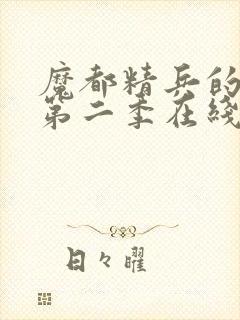 魔都精兵的
第二季在线
日々曜